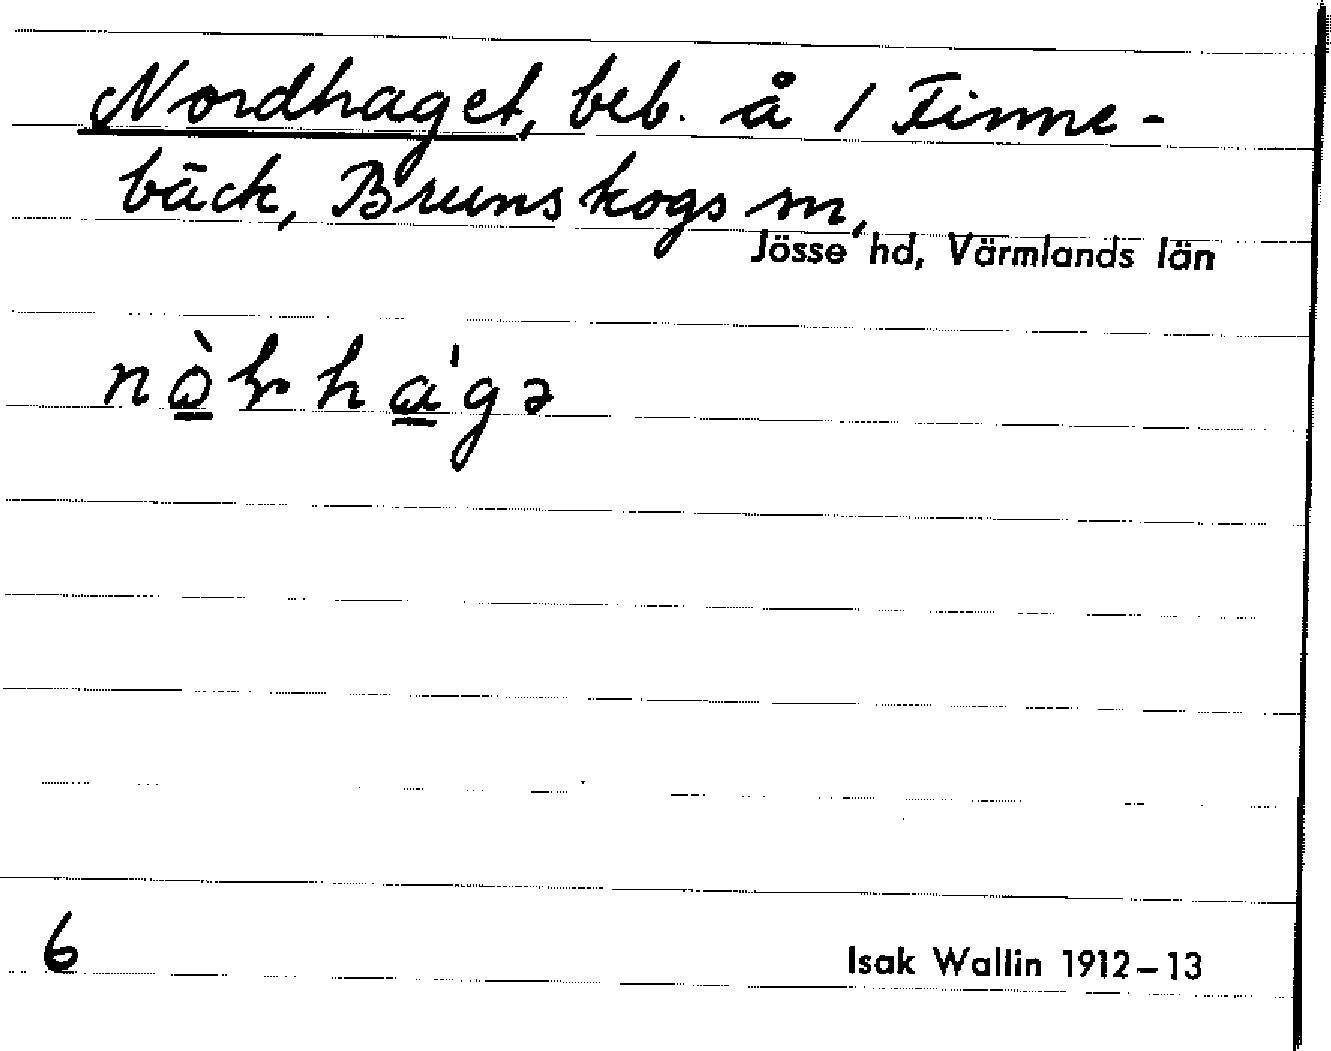 Nordhaget, beb. å 1 Finne-
bäck, Brunskogs sn,
Jösse hd, Värmlands län
6
Isak Wallin 1912-13